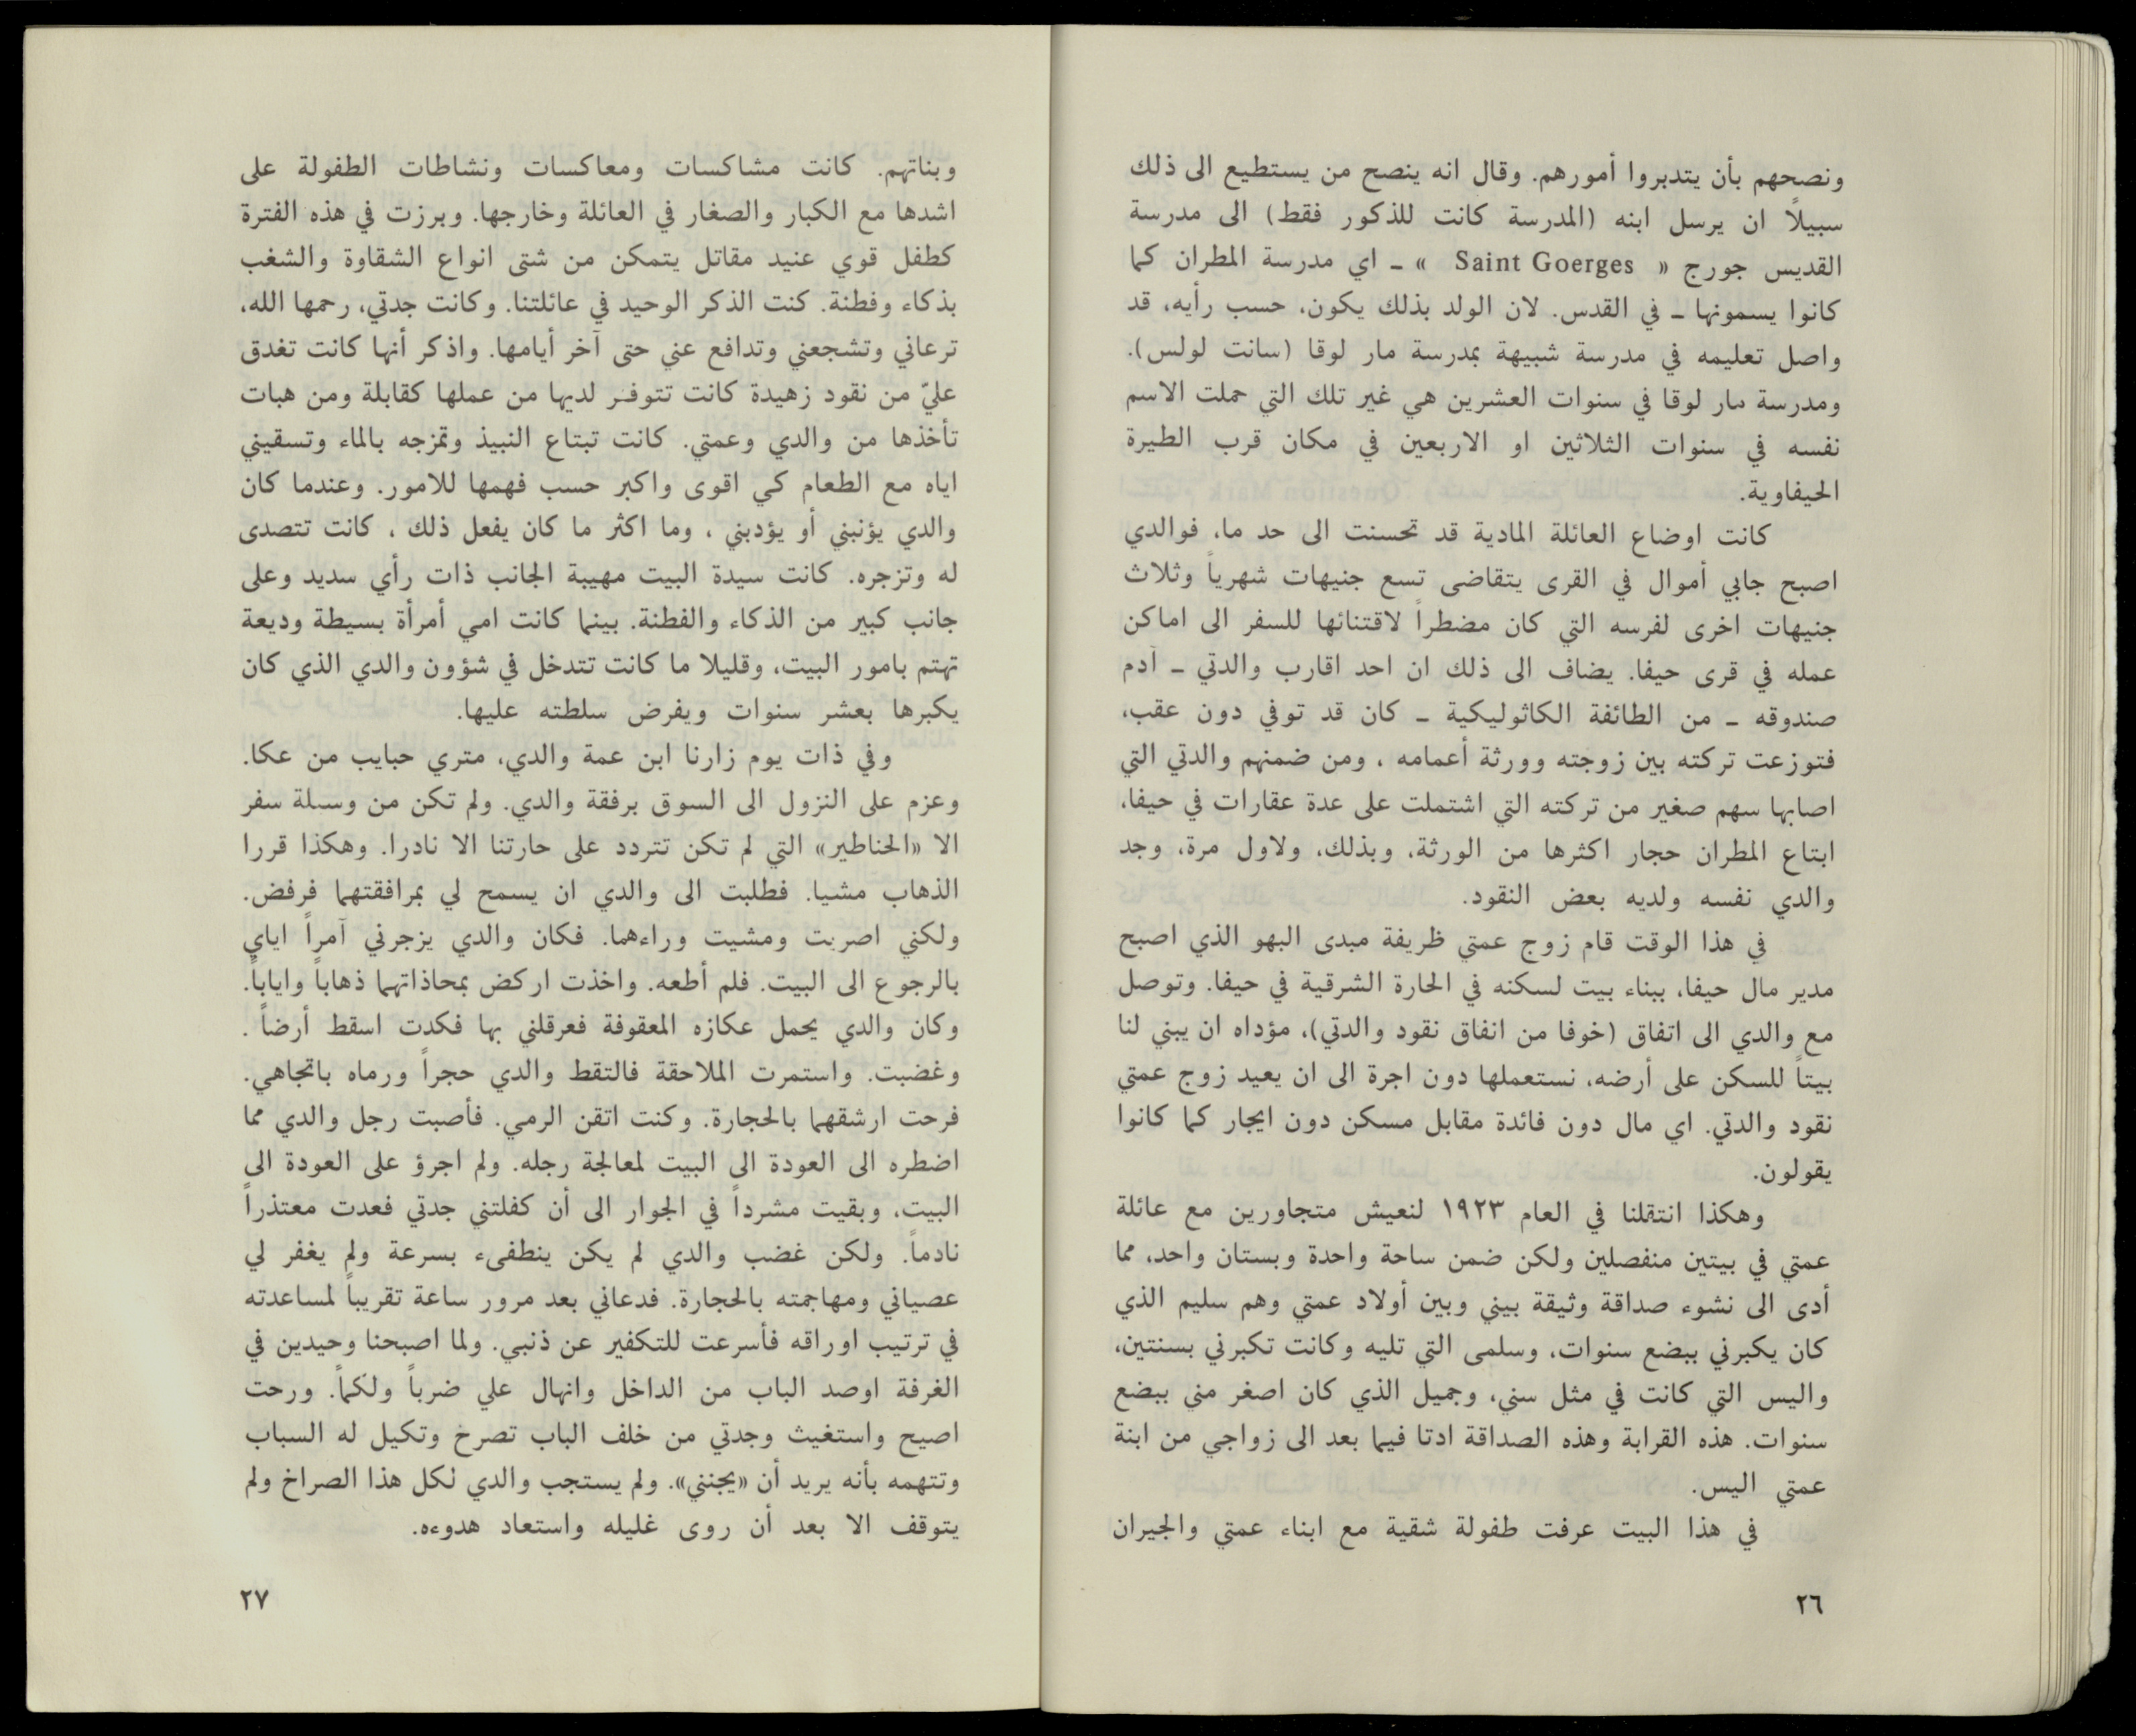 ونصحهم بأن يتدبروا أمورهم. وقال انه ينصح من يستطيع الى ذلك
سبيلاً ان يرسل ابنه (المدرسة كانت للذكور فقط) الى مدرسة
القديس جورج « Saint Goerges » ـ اي مدرسة المطران كما
كانوا يسمونها ـ في القدس. لان الولد بذلك يكون، حسب رأيه، قد
واصل تعليمه في مدرسة شبيهة بمدرسة مار لوقا (سانت لولس).
ومدرسة مار لوقا في سنوات العشرين هي غير تلك التي حملت الاسم
نفسه في سنوات الثلاثين او الاربعين في مكان قرب الطيرة
الحيفاوية.
كانت اوضاع العائلة المادية قد تحسنت الى حد ما، فوالدي
اصبح جابي أموال في القرى يتقاضى تسع جنيهات شهرياً وثلاث
جنيهات اخرى لفرسه التي كان مضطراً لاقتنائها للسفر الى اماكن
عمله في قرى حيفا. يضاف الى ذلك ان احد اقارب والدتي ـ آدم
صندوقه ـ من الطائفة الكاثوليكية ـ كان قد توفي دون عقب،
فتوزعت تركته بين زوجته وورثة أعمامه ، ومن ضمنهم والدتي التي
اصابها سهم صغير من تركته التي اشتملت على عدة عقارات في حيفا،
ابتاع المطران حجار اكثرها من الورثة، وبذلك، ولاول مرة، وجد
والدي نفسه ولديه بعض النقود.
في هذا الوقت قام زوج عمتي ظريفة مبدى البهو الذي اصبح
مدير مال حيفا، ببناء بيت لسكنه في الحارة الشرقية في حيفا. وتوصل
مع والدي الى اتفاق (خوفا من انفاق نقود والدتي)، مؤداه ان يبني لنا
بيتاً للسكن على أرضه، نستعملها دون اجرة الى ان يعيد زوج عمتي
نقود والدتي. اي مال دون فائدة مقابل مسكن دون ايجار كما كانوا
يقولون.
وهكذا انتقلنا في العام ١٩٢٣ لنعيش متجاورين مع عائلة
عمتي في بيتين منفصلين ولكن ضمن ساحة واحدة وبستان واحد، مما
أدى الى نشوء صداقة وثيقة بيني وبين أولاد عمتي وهم سليم الذي
كان يكبرني ببضع سنوات، وسلمى التي تليه وكانت تكبرني بسنتين،
واليس التي كانت في مثل سني، وجميل الذي كان اصغر مني ببضع
سنوات. هذه القرابة وهذه الصداقة ادتا فيما بعد الى زواجي من ابنة
عمتي اليس.
في هذا البيت عرفت طفولة شقية مع ابناء عمتي والجيران
٢٦
وبناتهم. كانت مشاكسات ومعاكسات ونشاطات الطفولة على
اشدها مع الكبار والصغار في العائلة وخارجها. وبرزت في هذه الفترة
كطفل قوي عنيد مقاتل يتمكن من شتى انواع الشقاوة والشغب
بذكاء وفطنة. كنت الذكر الوحيد في عائلتنا. وكانت جدتي، رحمها الله،
ترعاني وتشجعني وتدافع عني حتى آخر أيامها. واذكر أنها كانت تغدق
عليّ من نقود زهيدة كانت تتوفر لديها من عملها كقابلة ومن هبات
تأخذها من والدي وعمتي. كانت تبتاع النبيذ وتمزجه بالماء وتسقيني
اياه مع الطعام كي اقوى واكبر حسب فهمها للامور. وعندما كان
والدي يؤنبني أو يؤدبني ، وما اكثر ما كان يفعل ذلك ، كانت تتصدى
له وتزجره. كانت سيدة البيت مهيبة الجانب ذات رأي سديد وعلى
جانب كبير من الذكاء والفطنة. بينما كانت امي أمرأة بسيطة وديعة
تهتم بامور البيت، وقليلا ما كانت تتدخل في شؤون والدي الذي كان
يكبرها بعشر سنوات ويفرض سلطته عليها.
وفي ذات يوم زارنا ابن عمة والدي، متري حبايب من عكا.
وعزم على النزول الى السوق برفقة والدي. ولم تكن من وسيلة سفر
الا «الحناطير» التي لم تكن تتردد على حارتنا الا نادرا. وهكذا قررا
الذهاب مشيا. فطلبت الى والدي ان يسمح لي بمرافقتهما فرفض.
ولكني اصريت ومشيت وراءهما. فكان والدي يزجرني آمراً اياي
بالرجوع الى البيت. فلم أطعه. واخذت اركض بمحاذاتهما ذهاباً واياباً.
وكان والدي يحمل عكازه المعقوفة فعرقلني بها فكدت اسقط أرضاً .
وغضبت. واستمرت الملاحقة فالتقط والدي حجراً ورماه باتجاهي.
فرحت ارشقهما بالحجارة. وكنت اتقن الرمي. فأصبت رجل والدي مما
اضطره الى العودة الى البيت لمعالجة رجله. ولم اجرؤ على العودة الى
البيت، وبقيت مشرداً في الجوار الى أن كفلتني جدتي فعدت معتذراً
نادماً. ولكن غضب والدي لم يكن ينطفىء بسرعة ولم يغفر لي
عصياني ومهاجمته بالحجارة. فدعاني بعد مرور ساعة تقريباً لمساعدته
في ترتيب اوراقه فأسرعت للتكفير عن ذنبي. ولما اصبحنا وحيدين في
الغرفة اوصد الباب من الداخل وانهال علي ضرباً ولكماً. ورحت
اصيح واستغيث وجدتي من خلف الباب تصرخ وتكيل له السباب
وتتهمه بأنه يريد أن «يجنني». ولم يستجب والدي لكل هذا الصراخ ولم
يتوقف الا بعد أن روى غليله واستعاد هدوءه.
٢٧